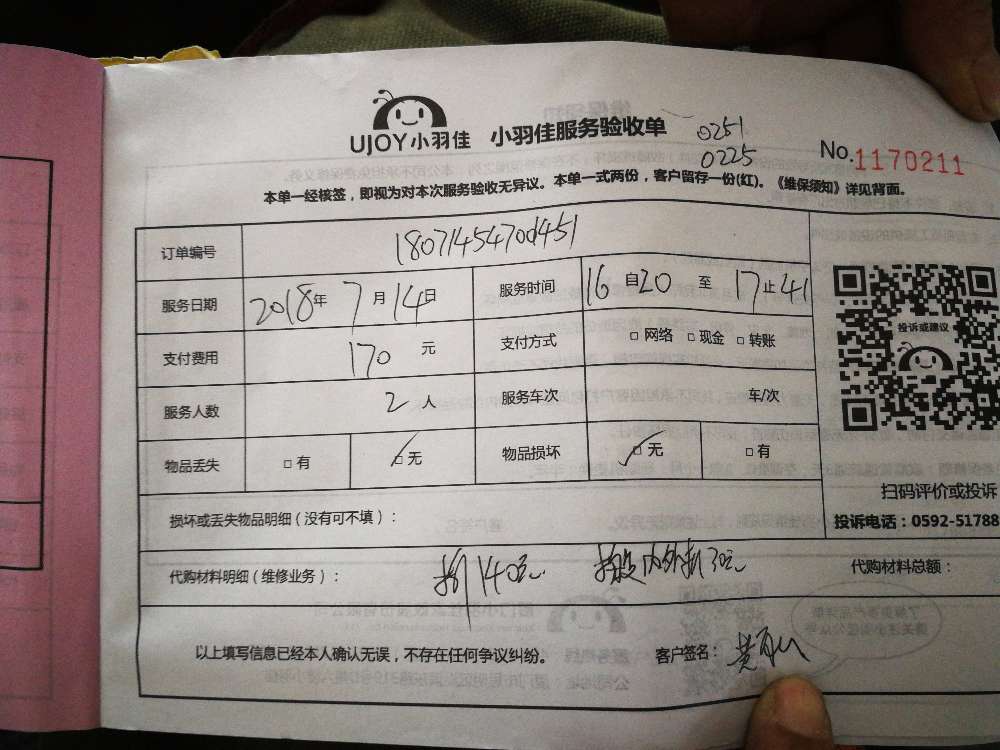 UJOY小羽佳 小羽佳服务验收单
0251
0225
No.1170211
本单一经核签，即视为对本次服务验收无异议。本单一式两份，客户留存一份(红)。《维保须知》详见背面。
订单编号
服务日期 2018年 7月 14日 服务时间 16自20 至 17止41
支付费用 170 元 支付方式 □ 网络 □ 现金 □ 转账
服务人数 2 人 服务车次 车/次
物品丢失 □ 有 ☑ 无 物品损坏 ☑ 无 □ 有
投诉或建议
扫码评价或投诉
投诉电话：0592-51788
损坏或丢失物品明细（没有可不填）：
代购材料明细（维修业务）： 140元 内外 30元 代购材料总额：
以上填写信息已经本人确认无误，不存在任何争议纠纷。 客户签名：